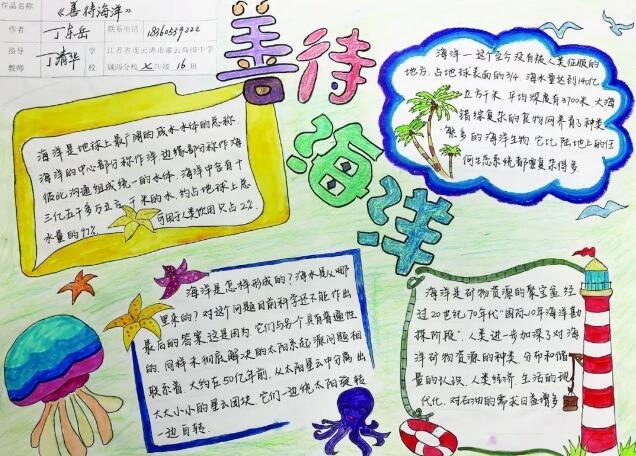 作品名称
《善待海洋》
作者
丁东岳
联系电话
18360559222
指导
教师
丁清华
学
校
江苏省连云港市灌云高级中学
城西分校七年级16班
善待
海洋
海洋是地球上最广阔的咸水水体的总称
海洋的中心部分称作洋边缘部分称作海
彼此沟通组成统一的水体。海洋中含有十
三亿五千多万立方千米的水,约占地球上总
水量的97%
可用于人类饮用只占2%
海洋一这个至今没有被人类征服的
地方,占地球表面的3/4,海水量达到14亿
立方千米,平均深度有3700米,大海
错综复杂的食物网养育了种类
繁多的海洋生物,它比陆地上的任
何生态系统都要复杂得多
海洋是怎样形成的?海水是从哪
里来的?对这个问题目前科学还不能作出
最后的答案这是因为,它们与另个具有普遍性
的,同样未彻底解决的太阳系起源问题相
联系着,大约在50亿年前,从太阳星云中分离出
大大小小的星云团块,它们一边绕太阳旋转
一边自转.
海洋是矿物资源的聚宝盆,经
过20世纪70年代"国际10年海洋勘
探阶段",人类进一步加深了对海
洋矿物资源的种类,分布和储
量的认识,人类经济、生活的现
代化,对石油的需求日益增多